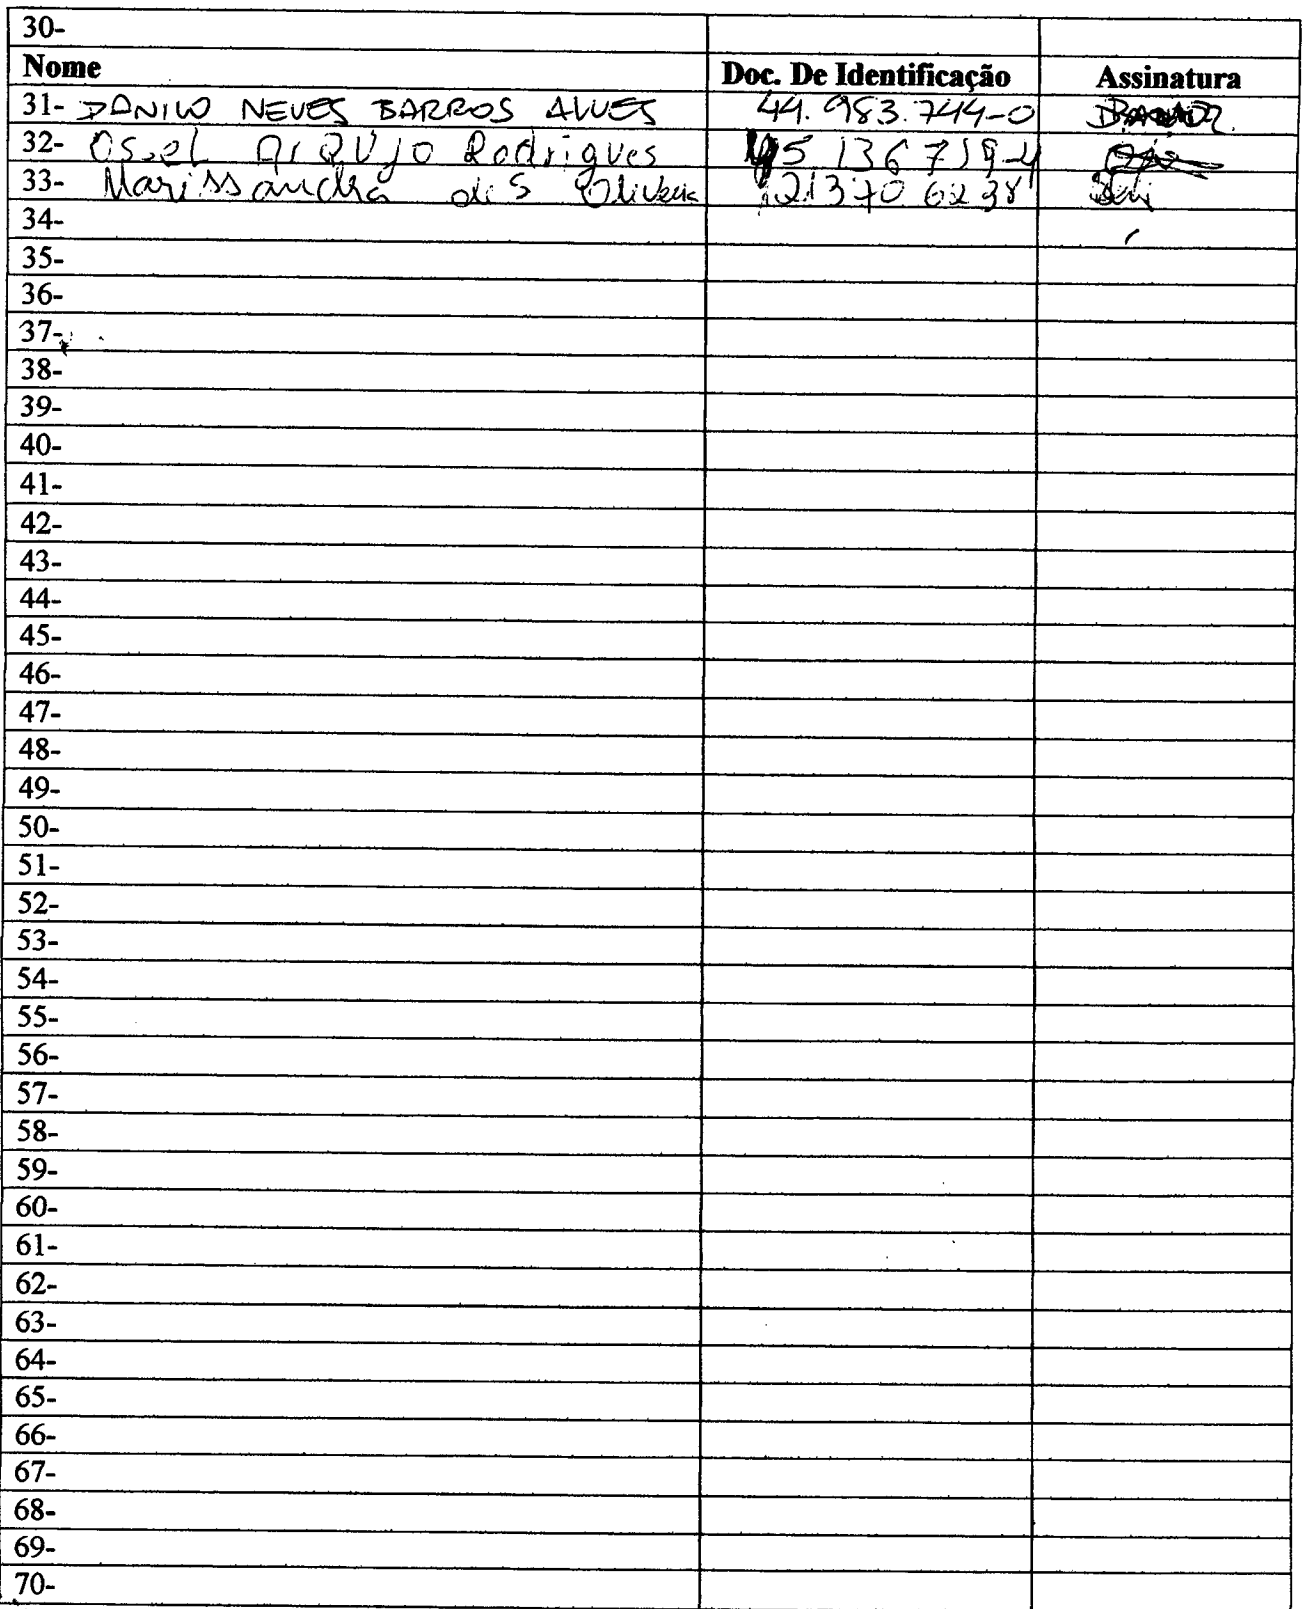 30-
Nome Doc. De Identificação Assinatura
31- DANILO NEVES BARROS ALVES 44.983.744-0
32- Osiel Araujo Rodrigues
33- Marissandra de S Oliveira
34-
35-
36-
37-
38-
39-
40-
41-
42-
43-
44-
45-
46-
47-
48-
49-
50-
51-
52-
53-
54-
55-
56-
57-
58-
59-
60-
61-
62-
63-
64-
65-
66-
67-
68-
69-
70-